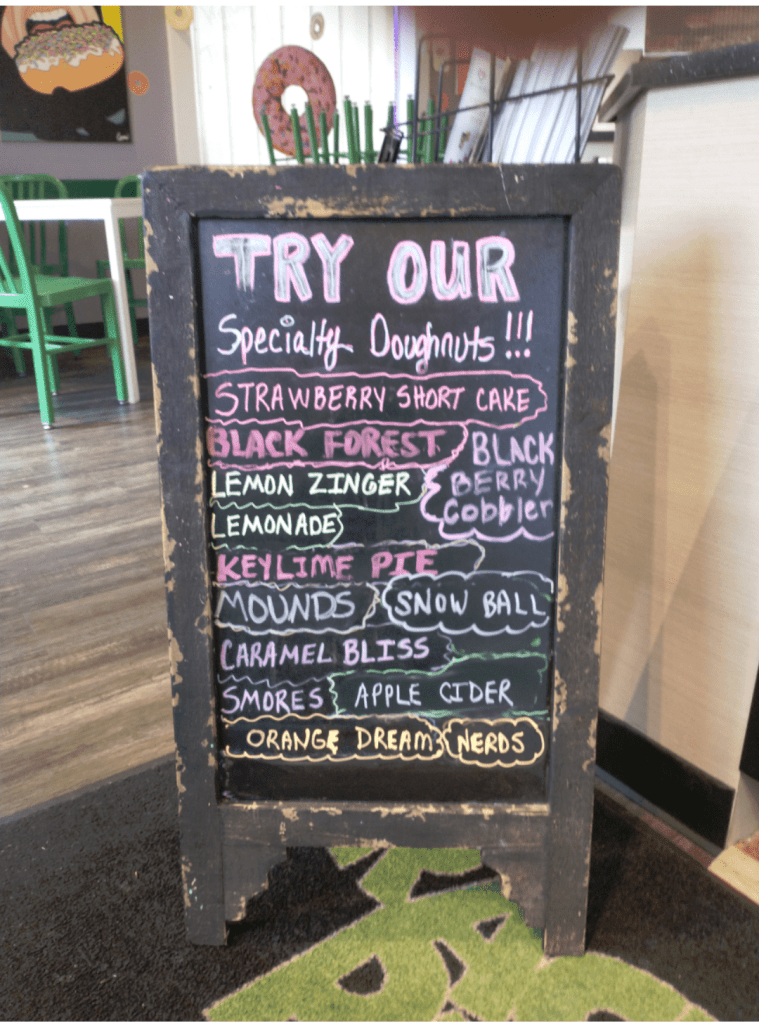 TRY OUR
Specialty Doughnuts!!!
STRAWBERRY SHORT CAKE
BLACK FOREST
BLACK
BERRY
Cobbler
LEMON ZINGER
LEMONADE
KEYLIME PIE
MOUNDS
SNOW BALL
CARAMEL BLISS
SMORES
APPLE CIDER
ORANGE DREAM
NERDS